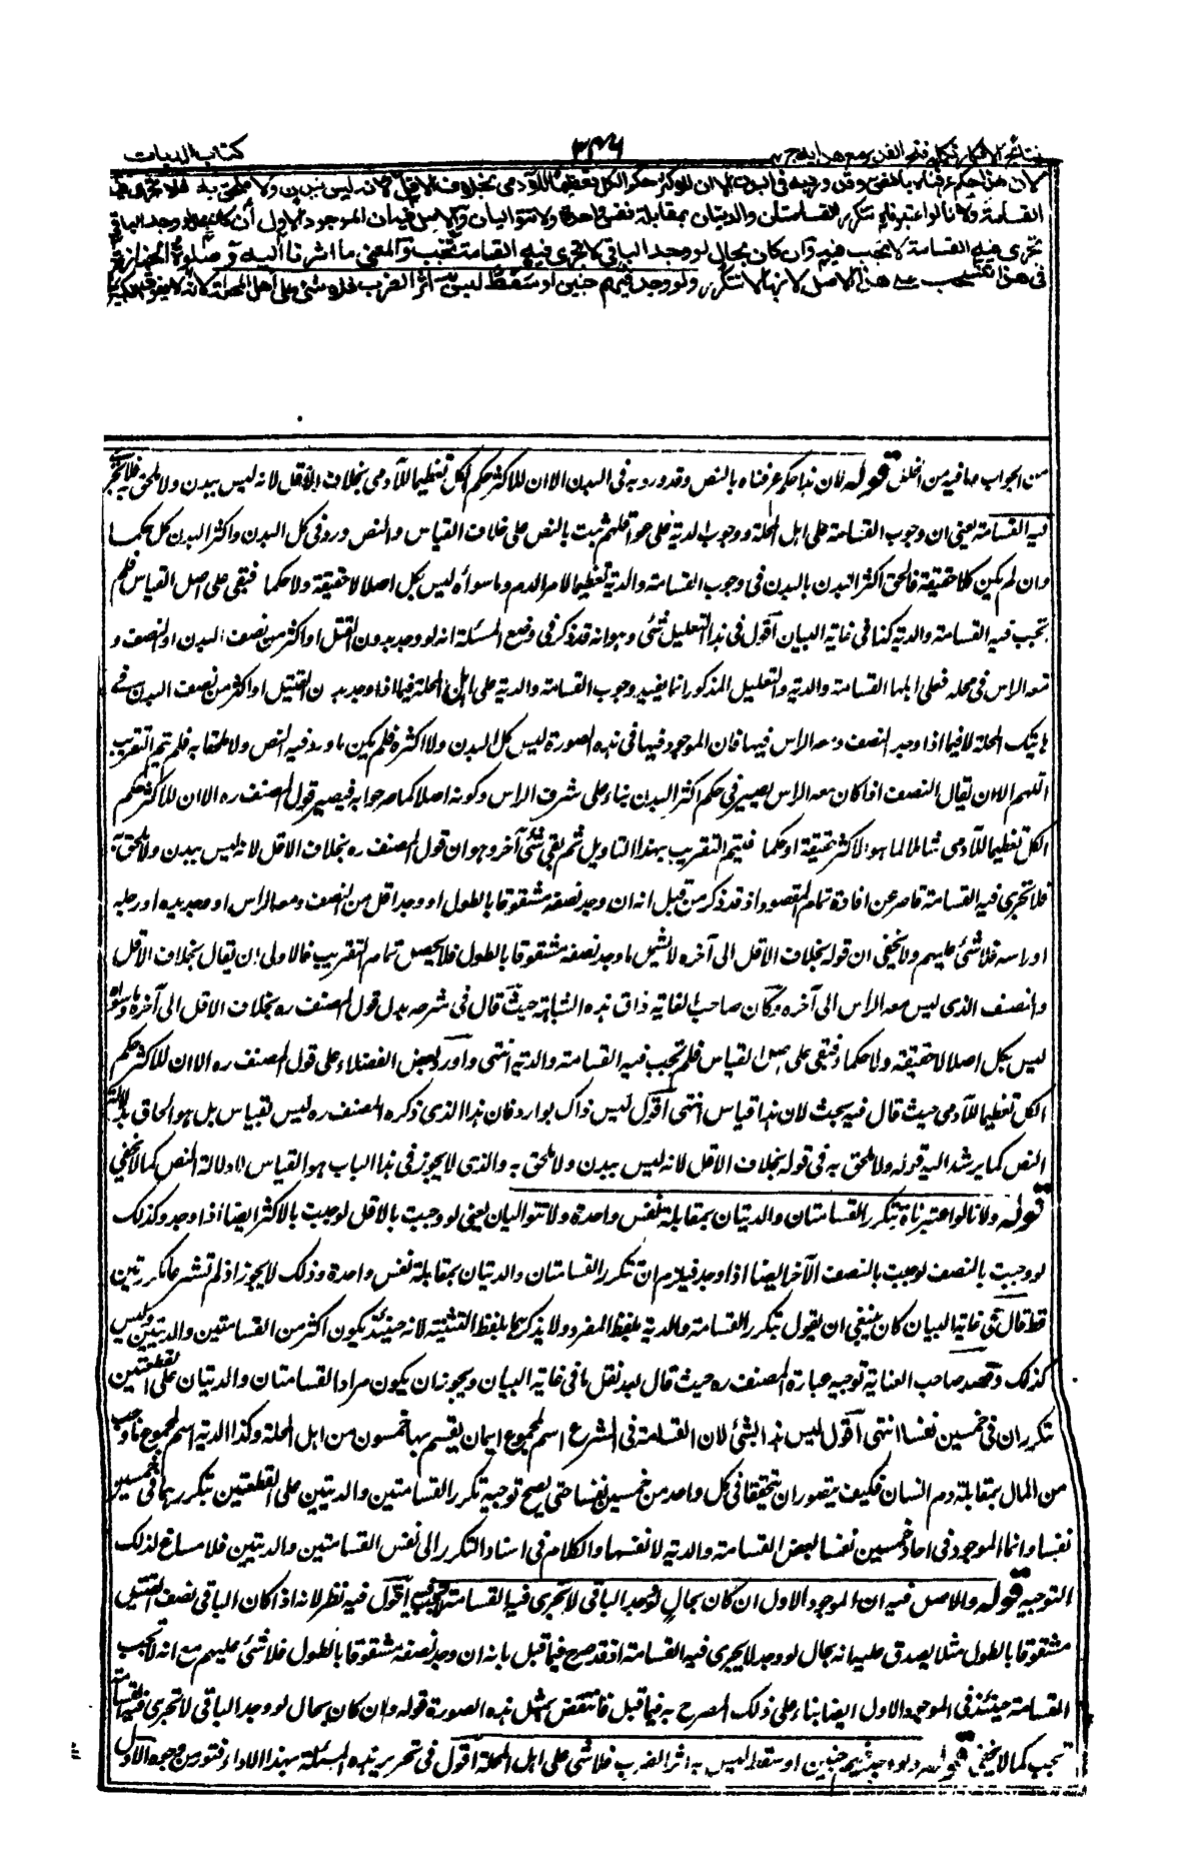 نتائج الافكار تكملة فتح القدير مع هدايه ج
٣٩٦
كتاب الديات
لان هذا حكم عرفناه بالنص وقد ورد به في البدن الا ان للاكثر حكم الكل تعظيما للآدمي بخلاف الاقل لانه ليس ببدن ولا ملحق به فلا تجرى فيه
القسامة ولانا لو اعتبرناه تتكرر القسامتان والديتان بمقابلة نفس واحدة ولا تتواليان والاصل فيه ان الموجود الاول ان كان بحال لو وجد الباقي
تجرى فيه القسامة لا تجب فيه وان كان بحال لو وجد الباقي لا تجرى فيه القسامة تجب والمعنى ما اشرنا اليه وصلوة الجنازة
في هذا تنسحب على هذا الاصل لانها لا تتكرر ولو وجد فيهم جنين او سقط ليس به اثر الضرب فلا شئ على اهل المحلة لانه لا يفوق الكبير
من الجواب ما فيه من الخلل قوله لان هذا حكم عرفناه بالنص وقد ورد به في البدن الا ان للاكثر حكم الكل تعظيما للآدمي بخلاف الاقل لانه ليس ببدن ولا ملحق به فلا تجرى
فيه القسامة يعني ان وجوب القسامة على اهل المحلة ووجوب الدية على عواقلهم ثبت بالنص على خلاف القياس والنص ورد في كل البدن واكثر البدن كل حكما
وان لم يكن كلا حقيقة فالحق اكثر البدن بالبدن في وجوب القسامة والدية تعظيما لامر الدم وما سواه ليس بكل اصلا لا حقيقة ولا حكما فبقى على اصل القياس فلم
تجب فيه القسامة والدية كذا في غاية البيان اقول في هذا التعليل شئ وهو انه قد ذكر في وضع المسئلة انه لو وجد بدن القتيل او اكثر من نصف البدن او النصف و
معه الراس في محله فعلى اهلها القسامة والدية والتعليل المذكور انما يفيد وجوب القسامة والدية على اهل المحلة فيما اذا وجد بدن القتيل او اكثر من نصف البدن في
هاتيك المحلة لا فيما اذا وجد النصف ومعه الراس فيها فان الموجود فيها في هذه الصورة ليس كل البدن ولا اكثره فلم يكن ما ورد فيه النص ولا ملحقا به فلم يتم التقريب
اللهم الا ان يقال النصف اذا كان معه الراس يصير في حكم اكثر البدن بناء على شرف الراس وكونه اصلا كما صرحوا به فيصير قول المصنف ره الا ان للاكثر حكم
الكل تعظيما للآدمي شاملا لما هو الاكثر حقيقة او حكما فيتم التقريب بهذا التاويل ثم بقى شئ آخر وهو ان قول المصنف ره بخلاف الاقل لانه ليس ببدن ولا ملحق به
فلا تجرى فيه القسامة قاصر عن افادة تمام المقصود اذ قد ذكر من قبل انه ان وجد نصفه مشقوقا بالطول او وجد اقل من النصف ومعه الراس او وجد يده او رجله
او راسه فلا شئ عليهم ولا يخفى ان قوله بخلاف الاقل الى آخره لا يشمل ما وجد نصفه مشقوقا بالطول فلا يحصل تمام التقريب فالاولى ان يقال بخلاف الاقل
والنصف الذي ليس معه الراس الى آخره وكان صاحب الغاية ذاق هذه الشناعة حيث قال في شرحه بدل قول المصنف ره بخلاف الاقل الى آخره وما سواه
ليس بكل اصلا لا حقيقة ولا حكما فبقى على اصل القياس فلم تجب فيه القسامة والدية انتهى واورد بعض الفضلاء على قول المصنف ره الا ان للاكثر حكم
الكل تعظيما للآدمي حيث قال فيه بحث لان هذا قياس انتهى اقول ليس ذاك بوارد فان هذا الذي ذكره المصنف ره ليس بقياس بل هو الحاق بدلالة
النص كما يرشد اليه قوله ولا ملحق به في قوله بخلاف الاقل لانه ليس ببدن ولا ملحق به والذي لا يجوز في هذا الباب هو القياس لا دلالة النص كما لا يخفى
قوله ولانا لو اعتبرناه تتكرر القسامتان والديتان بمقابلة نفس واحدة ولا تتواليان يعني لو وجبت بالاقل لوجبت بالاكثر ايضا اذا وجد وكذلك
لو وجبت بالنصف لوجبت بالنصف الآخر ايضا اذا وجد فيلزم ان تتكرر القسامتان والديتان بمقابلة نفس واحدة وذلك لا يجوز اذ لم تشرعا مكررتين
قط قال في غاية البيان كان ينبغي ان يقول تتكرر القسامة والدية بلفظ المفرد ولا يذكرهما بلفظ التثنية لانه حينئذ يكون اكثر من القسامتين والديتين وليس
كذلك وقصد صاحب العناية توجيه عبارة المصنف ره حيث قال بعد نقل ما في غاية البيان ويجوز ان يكون مراد القسامتان والديتان على القطعتين
تتكرران في خمسين نفسا انتهى اقول ليس هذا بشئ لان القسامة في الشرع اسم لمجموع ايمان يقسم بها خمسون من اهل المحلة وكذا الدية اسم لمجموع ما وجب
من المال بمقابلة دم انسان فكيف يتصور ان تتحققا في كل واحد من خمسين نفسا حتى يصح توجيه تكرر القسامتين والديتين على القطعتين بتكررهما في خمسين
نفسا وانما الموجود في احاد خمسين نفسا بعض القسامة والدية لا نفسهما والكلام في اسناد التكرر الى نفس القسامتين والديتين فلا مساغ لذلك
التوجيه قوله والاصل فيه ان الموجود الاول ان كان بحال لو وجد الباقي لا تجرى فيه القسامة تجب فيه اقول فيه نظر لانه اذا كان الباقي نصف القتيل
مشقوقا بالطول مثلا يصدق عليه انه بحال لو وجد لا يجرى فيه القسامة اذ قد صرح فيما قبل بانه ان وجد نصفه مشقوقا بالطول فلا شئ عليهم مع انه لا تجب
القسامة حينئذ في الموجود الاول ايضا بناء على ذلك المصرح به فيما قبل فانتقض بمثل هذه الصورة قوله وان كان بحال لو وجد الباقي لا تجرى فيه القسامة
تجب كما لا يخفى قوله ولو وجد فيهم جنين او سقط ليس به اثر الضرب فلا شئ على اهل المحلة اقول في تحرير هذه المسئلة بهذا الاداء فتور من وجوه الاول